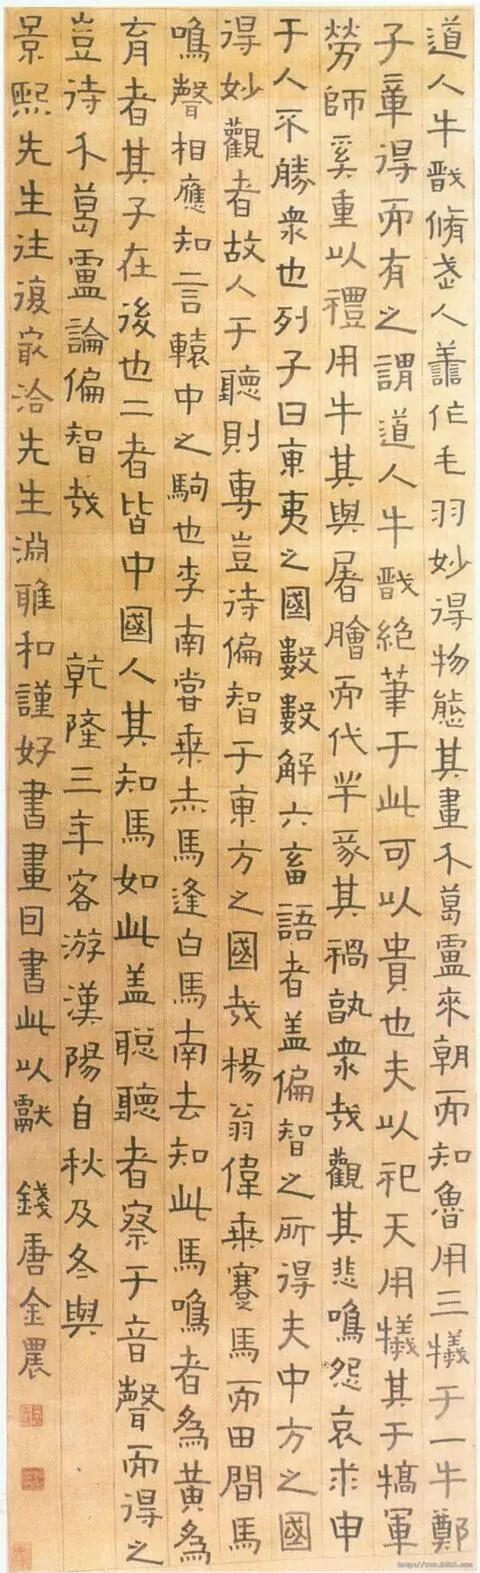 道人牛戩脩人譱作毛羽妙得物態其畫介葛盧來朝而知魯用三犧于一牛鄭
子得而有之謂道人牛戩絕筆于此可以貴也夫以祀天用犧其于犒軍
勞師奚重以禮用牛其與屠膾而代羊豕其禍孰衆哉觀其悲鳴怨哀求申
于人不勝衆也列子曰東夷之國數數解六畜語者盖偏智之所得夫中方之國
得妙觀者故人于聽則專豈待偏智于東方之國哉楊翁偉乘蹇馬而田間馬
鳴聲相應知言轅中之駒也李南嘗乘赤馬逢白馬南去知此馬鳴者為黃為
育者其子在後也二者皆中國人其知馬如此盖聪聽者察于音聲而得之
豈待介葛盧論偏智哉 乾隆三年客游漢陽自秋及冬與
景熙先生往復冣洽先生淵雅和謹好書畫因書此以獻 錢唐金農